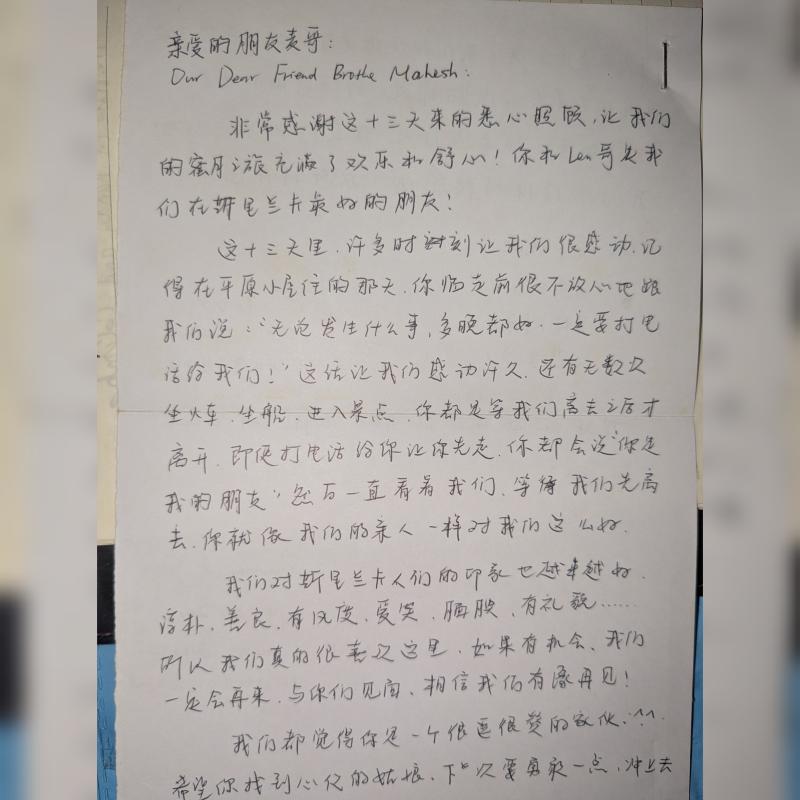 亲爱的朋友麦哥:
Our Dear Friend Brothe Mahesh:
非常感谢这十三天来的悉心照顾,让我们
的蜜月之旅充满了欢乐和舒心!你和Len哥是我
们在斯里兰卡最好的朋友!
这十三天里,许多时刻让我们很感动,记
得在平原小屋住的那天,你临走前很不放心地跟
我们说:“无论发生什么事,多晚都好,一定要打电
话给我们!”这话让我们感动许久,还有无数次
坐火车、坐船、进入景点,你都是等我们离去之后才
离开,即便打电话给你让你先走,你都会说“你是
我的朋友”然后一直看着我们,等待我们先离
去,你就像我们的亲人一样对我们这么好.
我们对斯里兰卡人们的印象也越来越好,
淳朴、善良、有风度、爱笑、腼腆、有礼貌……
所以我们真的很喜欢这里,如果有机会,我们
一定会再来,与你们见面,相信我们有缘再见!
我们都觉得你是一个很逗很赞的家伙.^^.
希望你找到心仪的姑娘,下次要勇敢一点,冲上去